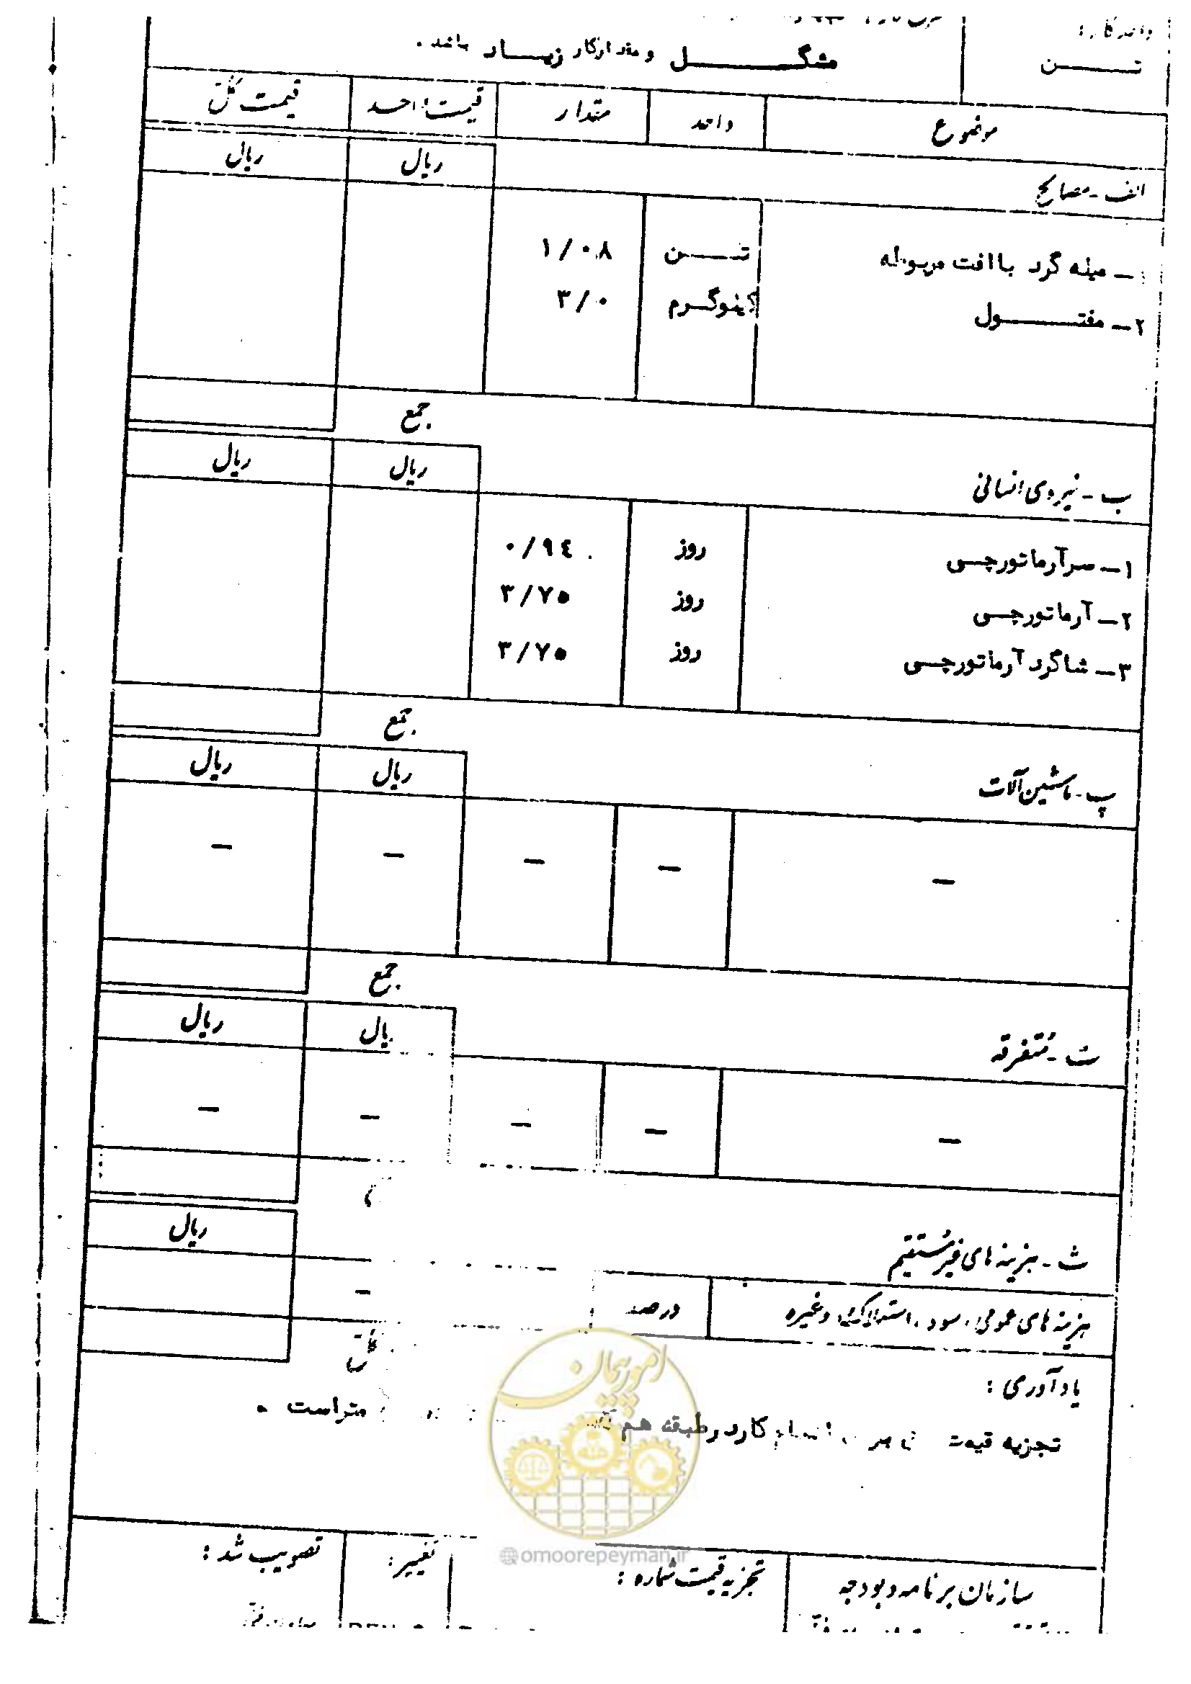 واحد کار:
تــــن
مشکــــــل و مقدار کار زیــاد باشد.
موضوع واحد مقدار قیمت واحد قیمت کل
ریال ریال
الف - مصالح
۱ــ میله گرد با افت مربوطه تـــن ۱/۰۸
۲ــ مفتــــــول کیلوگــرم ۳/۰
جمع
ریال ریال
ب - نیروی انسانی
۱ــ سرآرماتورچــی روز ۰/۹٤
۲ــ آرماتورچــی روز ۳/۷۵
۳ــ شاگرد آرماتورچــی روز ۳/۷۵
جمع
ریال ریال
پ - ماشین آلات
– – – – –
جمع
ریال ریال
ت - متفرقه
– – – – –
ریال
ث - هزینه های غیرمستقیم
هزینه های عمومی، سود، استهلاک و غیره درصد –
کل
یادآوری:
تجزیه قیمت انجام کار در طبقه هم متر است.
امور پیمان
@omoorepeyman.ir
سازمان برنامه و بودجه تجزیه قیمت شماره: تغییر: تصویب شد: